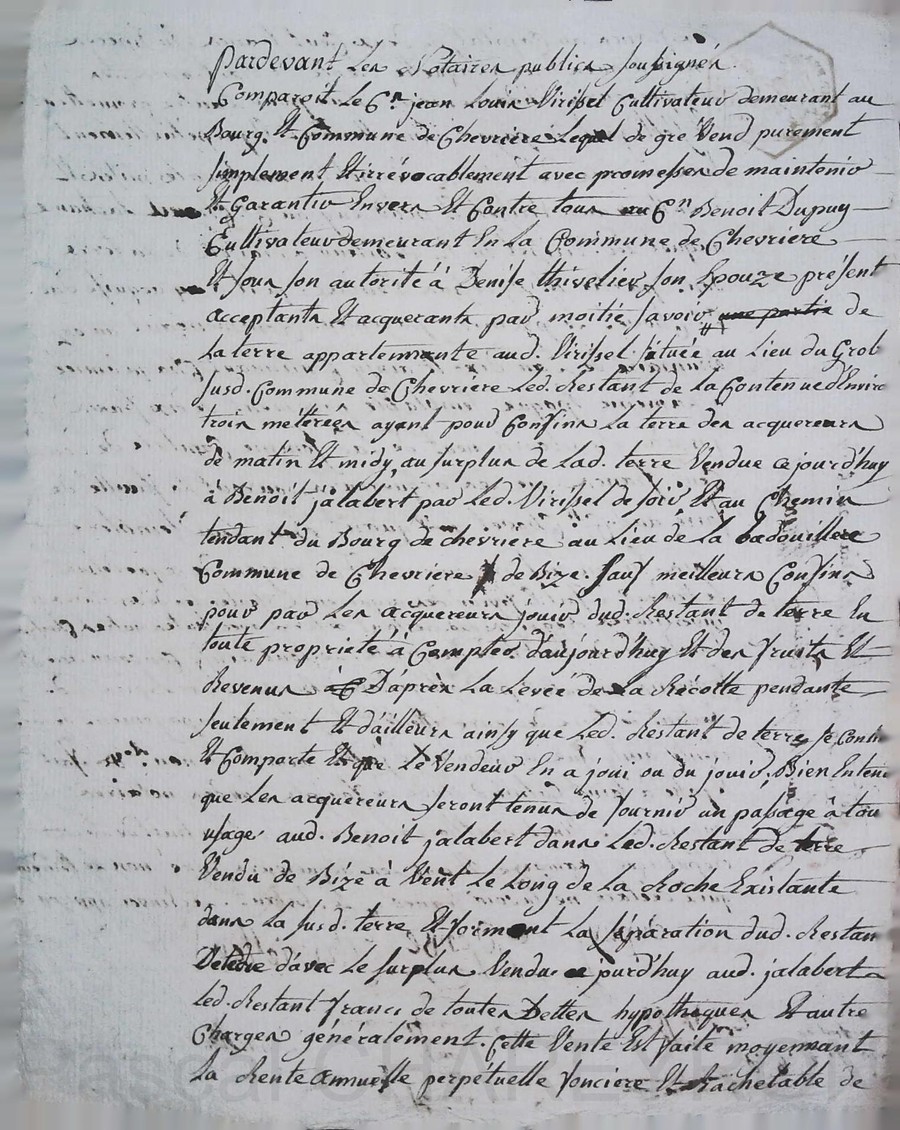 Pardevant Les Notaires publics soussignés
Comparoit Le Cn jean Louis Virissel Cultivateur demeurant au
Bourg Et Commune de Chevriere Lequel de gré Vend purement
simplement Et irrévocablement avec promesses de maintenir
Et Garantir Envers Et Contre tous au Cn Benoit Dupuy
Cultivateur demeurant En La Commune de Chevriere
Et sous son autorité à Denise thivelier son Epouze présent
acceptants Et acquerants par moitié savoir # une partie de
La terre appartennante aud. Virissel située au Lieu du Grol
susd. Commune de Chevriere Led. Restant de La Contenue d'Envir
trois métérées ayant pour Confins La terre des acquereurs
de matin Et midy, au surplus de Lad. terre Vendue cejourd'huy
à Benoit jalabert par Led. Virissel de soir Et au Chemin
tendant du Bourg de chevriere au Lieu de La badouillere
Commune de Chevriere de Bize. Sauf meilleurs Confins
pour par Les acquereurs jouir dud. Restant de terre En
toute proprieté à Compter d'aujourd'huy Et des fruits Et
Revenus D'après La Levée de La Récolte pendante
seulement Et d'ailleurs ainsy que Led. Restant de terre se Conti
Et Comporte Et que Le Vendeur En a joui ou du jouir. Bien Enten
que Les acquereurs seront tenus de fournir un passage à tou
usage aud. Benoit jalabert dans Led. Restant de terre
Vendu de Bize à Vent Le Long de La Roche Existante
dans La susd. terre Et formant La séparation dud. Restan
De terre d'avec Le surplus Vendu ce jourd'huy aud. jalabert
Led. Restant franc de toutes Dettes hypotheques Et autre
Charges généralement. Cette Vente Est faite moyennant
La Rente annuelle perpétuelle fonciere Et Rachetable de